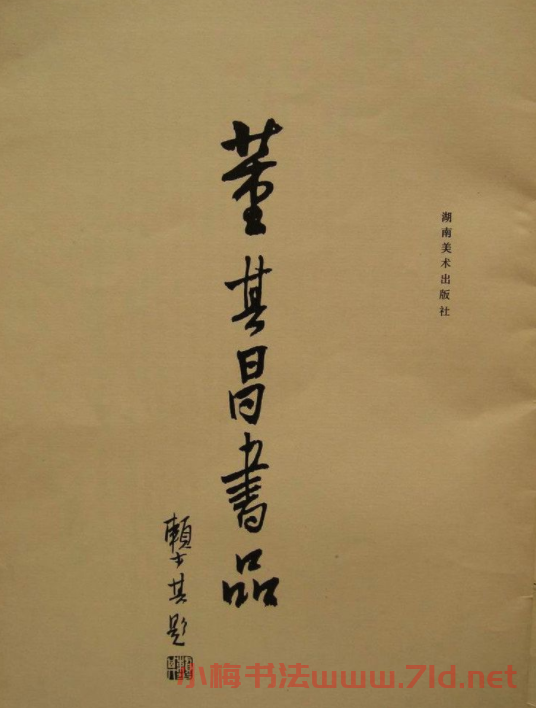 湖南美术出版社
董其昌書品
賴少其題
小梅书法www.7ld.net